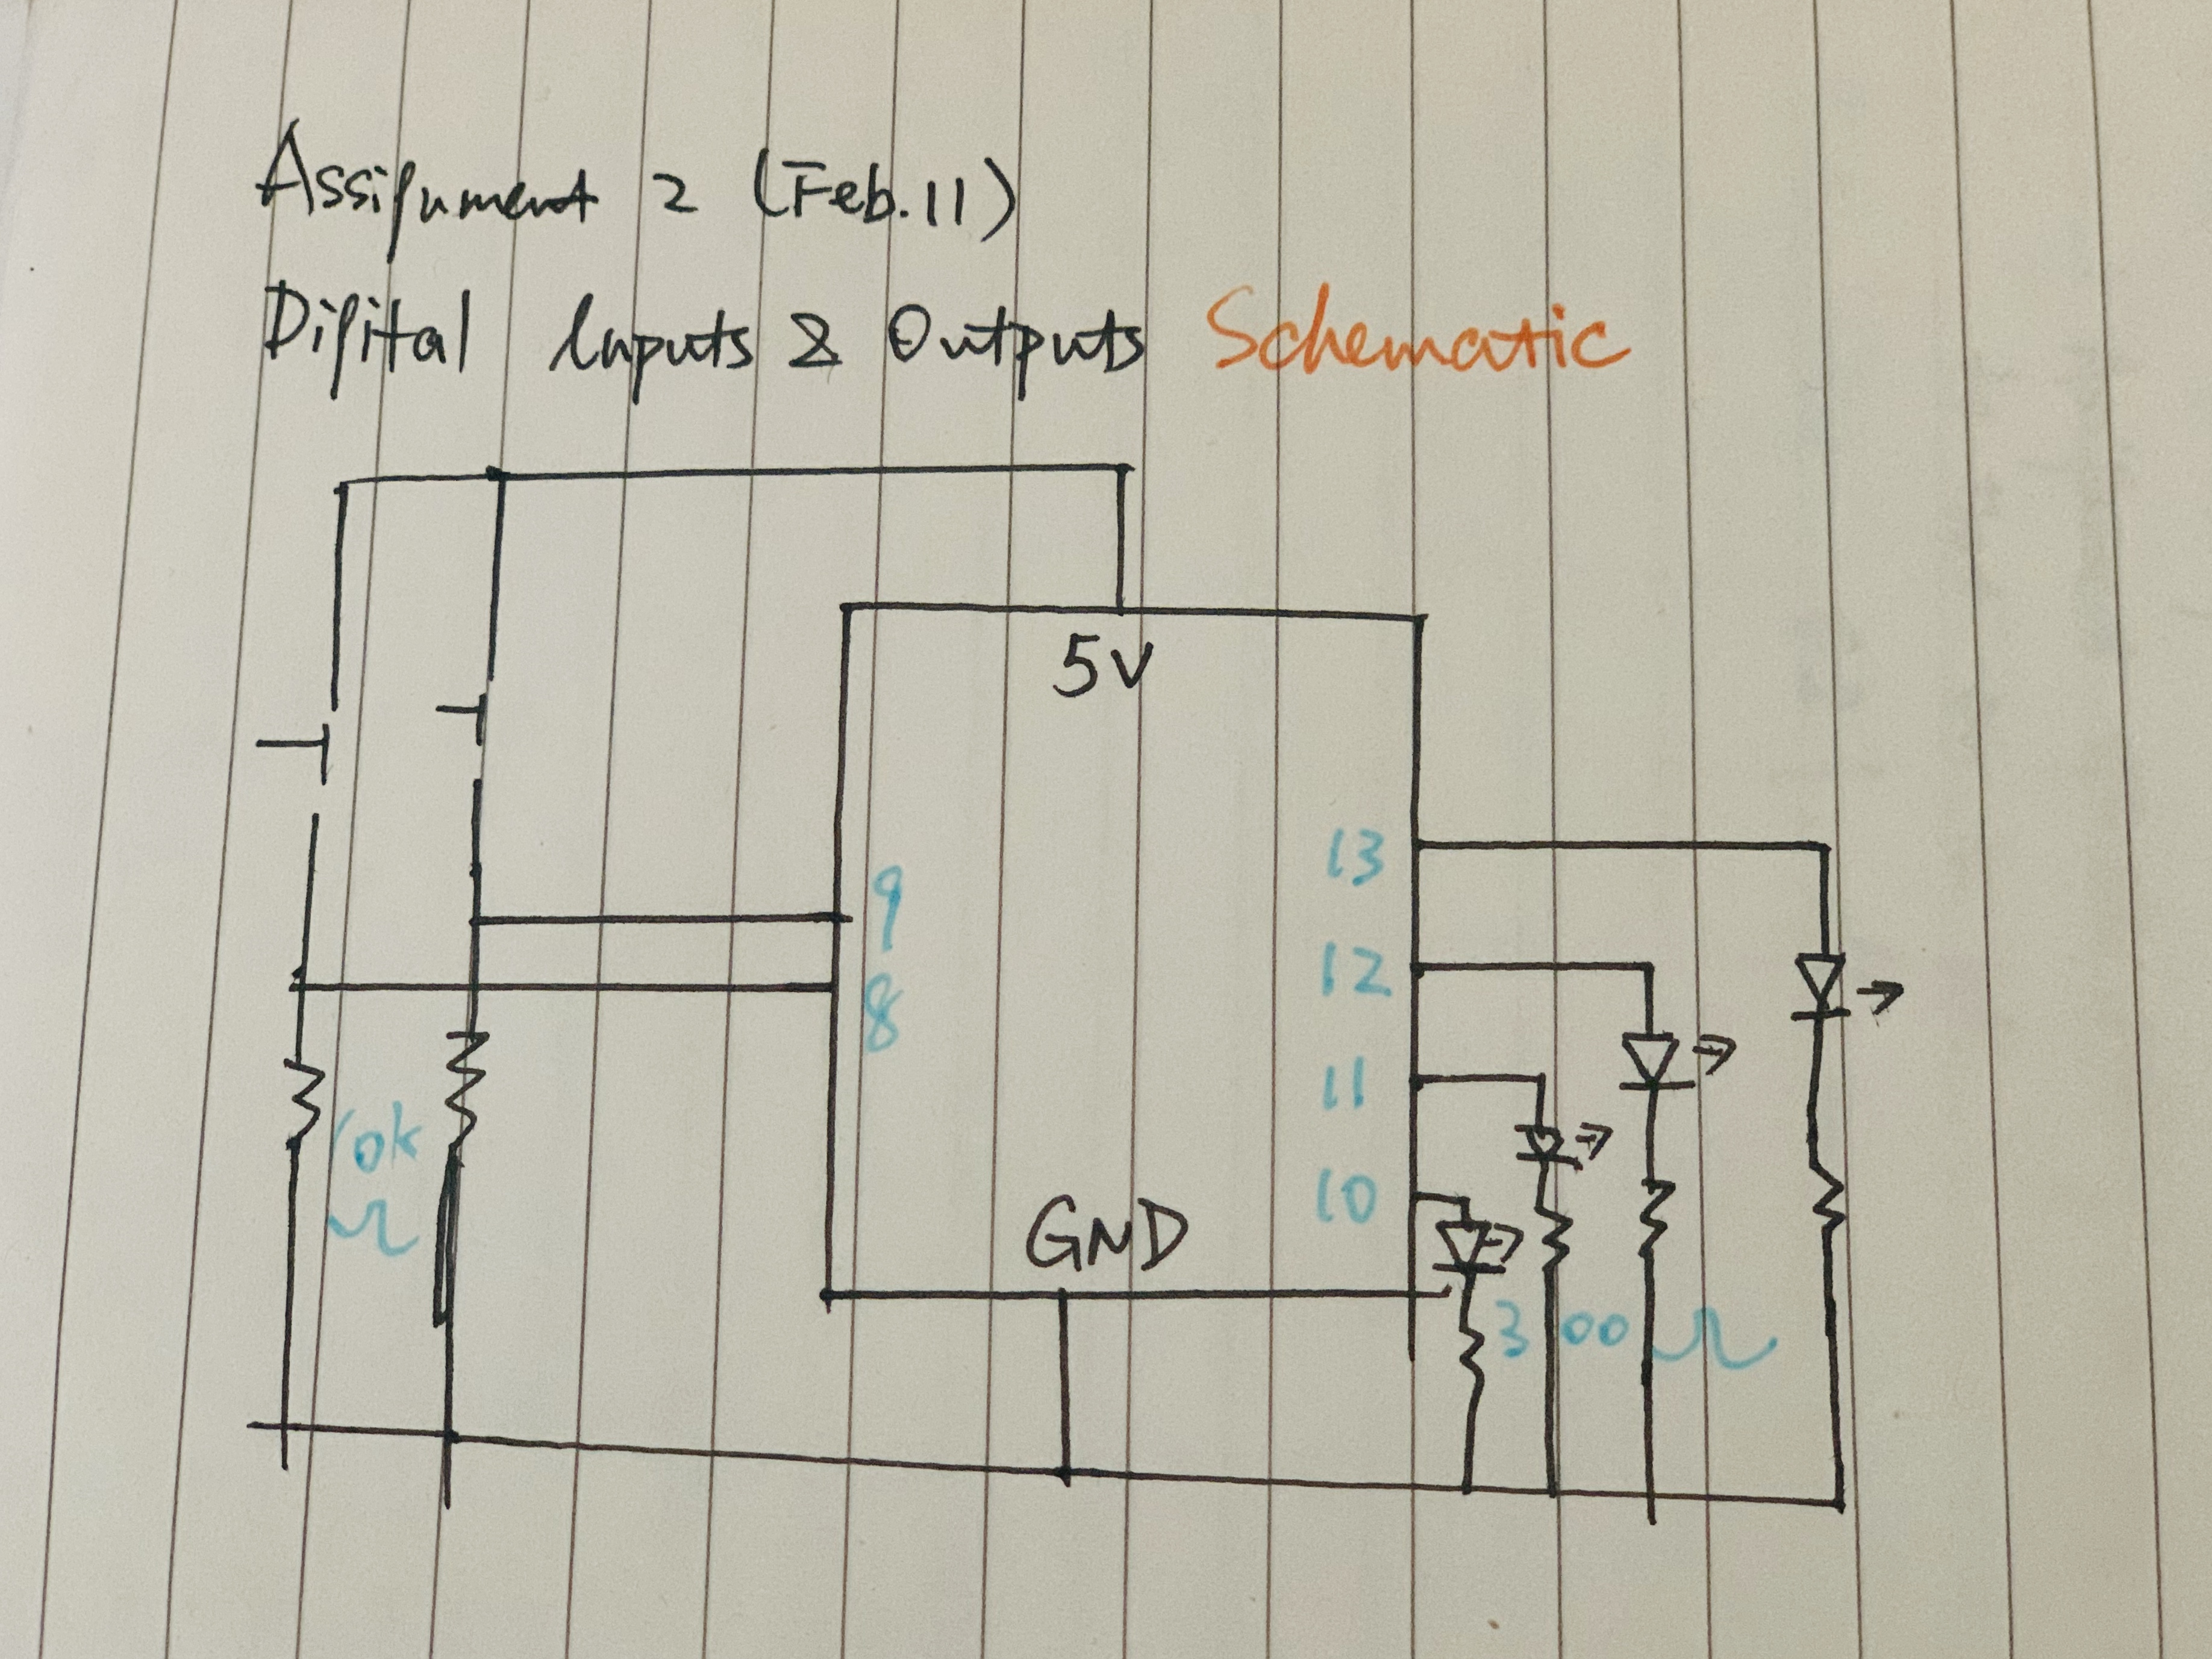 Assignment 2 (Feb.11)
Digital Inputs & Outputs Schematic
5V
13
9
12
8
11
10k
Ω
10
GND
300 Ω